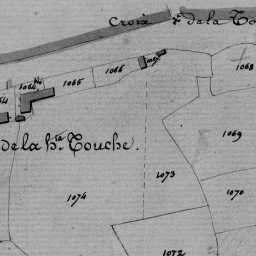 Croix de la To
1068
1066
1065
1064
de la hte Touche.
1069
1073
1074
1070
1072